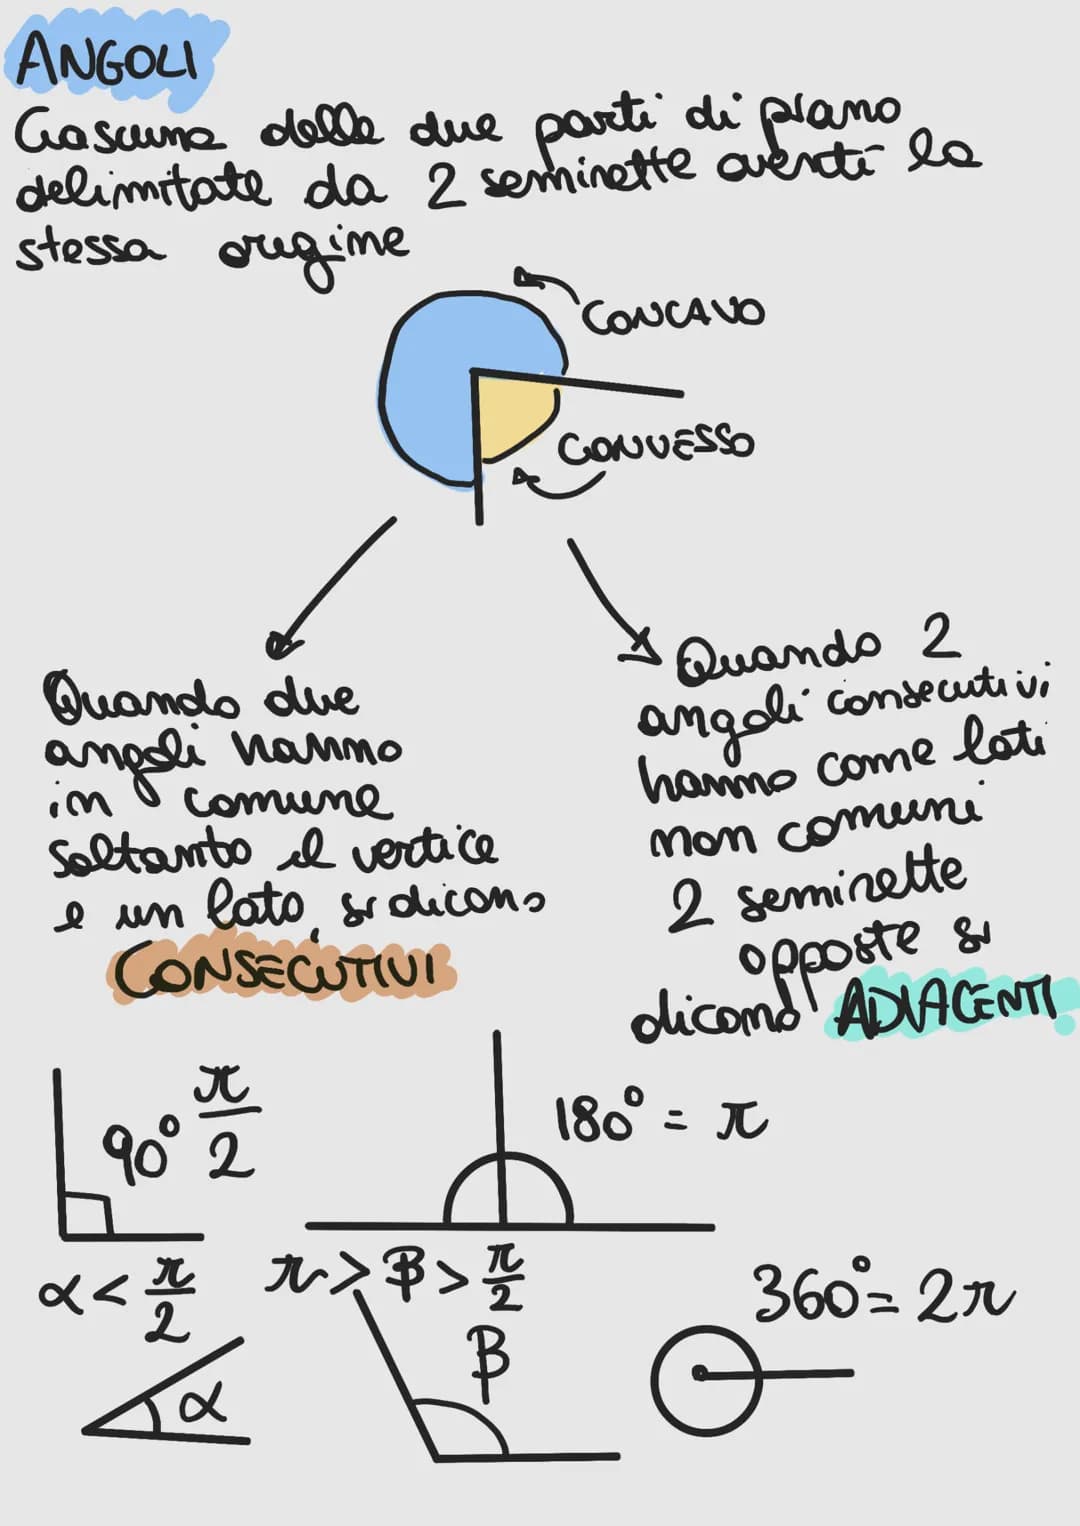 ANGOLI
Ciascuna delle due parti di piano
delimitate da 2 semirette aventi la
stessa origine
CONCAVO
CONVESSO
Quando due
angoli hanno
in comune
soltanto il vertice
e un lato, si dicono
CONSECUTIVI
Quando 2
angoli consecutivi
hanno come lati
non comuni
2 semirette
opposte si
dicono ADIACENTI
90° π/2
180° = π
α < π/2
π > β > π/2
360° = 2π
α
β